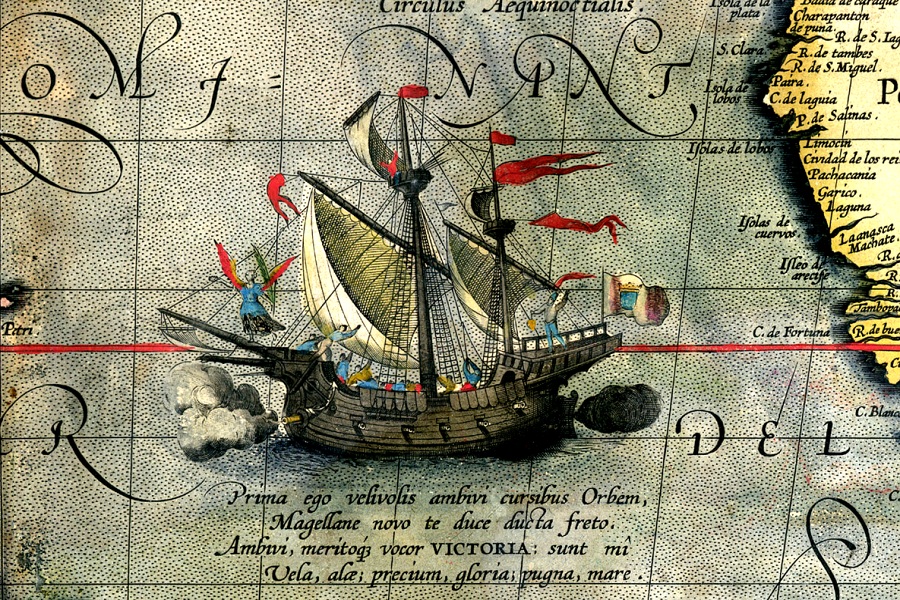 Circulus Aequinoctialis.
OMI=NANT,
R DEL
Petri
Prima ego velivolis ambivi cursibus Orbem,
Magellane novo te duce ducta freto.
Ambivi, meritoqʒ vocor VICTORIA: sunt mî
Vela, alæ; precium, gloria; pugna, mare.
Isola de la plata
Charapanton
de puna.
R. de S. Iag
S. Clara
R. de tambes
R. de S. Miguel.
Paira.
Isola de lobos
C. de laguia
P. de Salinas.
Isolas de lobos
Limocin
Cividad de los rei
Pachacania
Garico.
Laguna
Isolas de cuervos
Machate.
Isleo de arecife
C. de Fortuna
R. de bue
C. Blanc